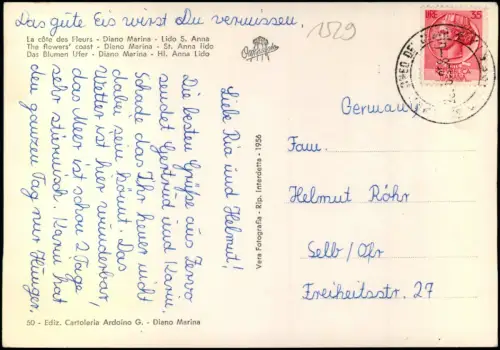 Das gute Eis wirst Du vermissen.
1529
La côte des Fleurs - Diano Marina - Lido S. Anna
The flowers' coast - Diano Marina - St. Anna lido
Das Blumen Ufer - Diano Marina - Hl. Anna Lido
Liebe Ria und Helmut!
Die besten Grüße aus Zervo
sendet Gertrud und Karin.
Schade das Ihr heuer nicht
dabei sein könnt. Das
Wetter ist hier wunderbar,
das Meer ist schon 2 Tage
sehr stürmisch. Karin hat
den ganzen Tag nur Hunger.
Vera Fotografia - Rip. Interdetta - 1956
50 - Ediz. Cartoleria Ardoino G. - Diano Marina
LIRE 35
Germany
Fam.
Helmut Röhr
Selb/Ofr
Freiheitsstr. 27